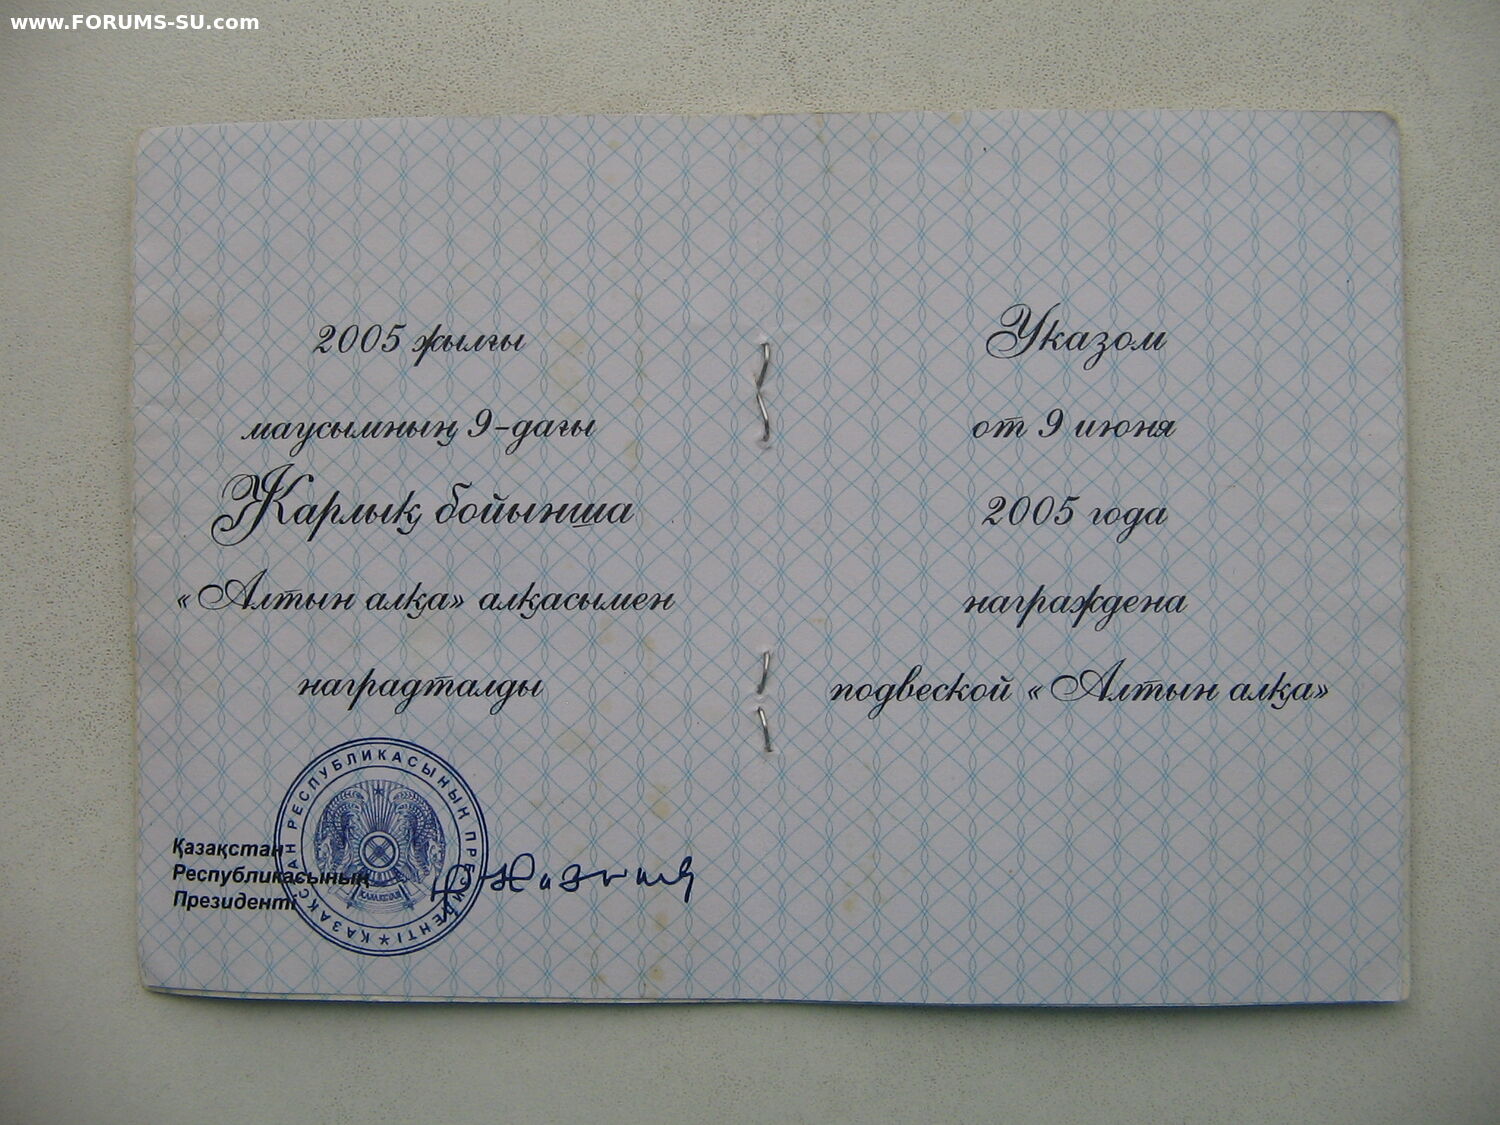 www.FORUMS-SU.com
2005 жылғы
маусымның 9-дағы
Жарлық бойынша
«Алтын алқа» алқасымен
наградталды
Қазақстан
Республикасының
Президенті
ҚАЗАҚСТАН РЕСПУБЛИКАСЫНЫҢ ПРЕЗИДЕНТІ
ҚАЗАҚСТАН
Указом
от 9 июня
2005 года
награждена
подвеской «Алтын алқа»